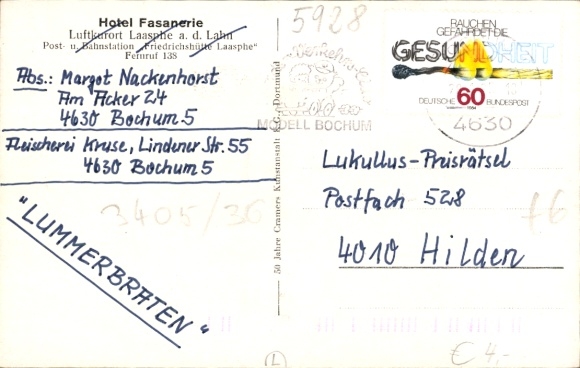 Hotel Fasanerie
Luftkurort Laasphe a. d. Lahn
Post- u. Bahnstation „Friedrichshütte Laasphe“
Fernruf 138
Abs.: Margot Nackenhorst
Am Acker 24
4630 Bochum 5
Fleischerei Kruse, Lindener Str. 55
4630 Bochum 5
3405/36
"LUMMERBRATEN"
50 Jahre Cramers Kunstanstalt K.G., Dortmund
5928
MODELL BOCHUM
RAUCHEN
GEFÄHRDET DIE
GESUNDHEIT
DEUTSCHE 60 BUNDESPOST
1984
4630
Lukullus-Preisrätsel
Postfach 528
4010 Hilden
L
€ 4,-